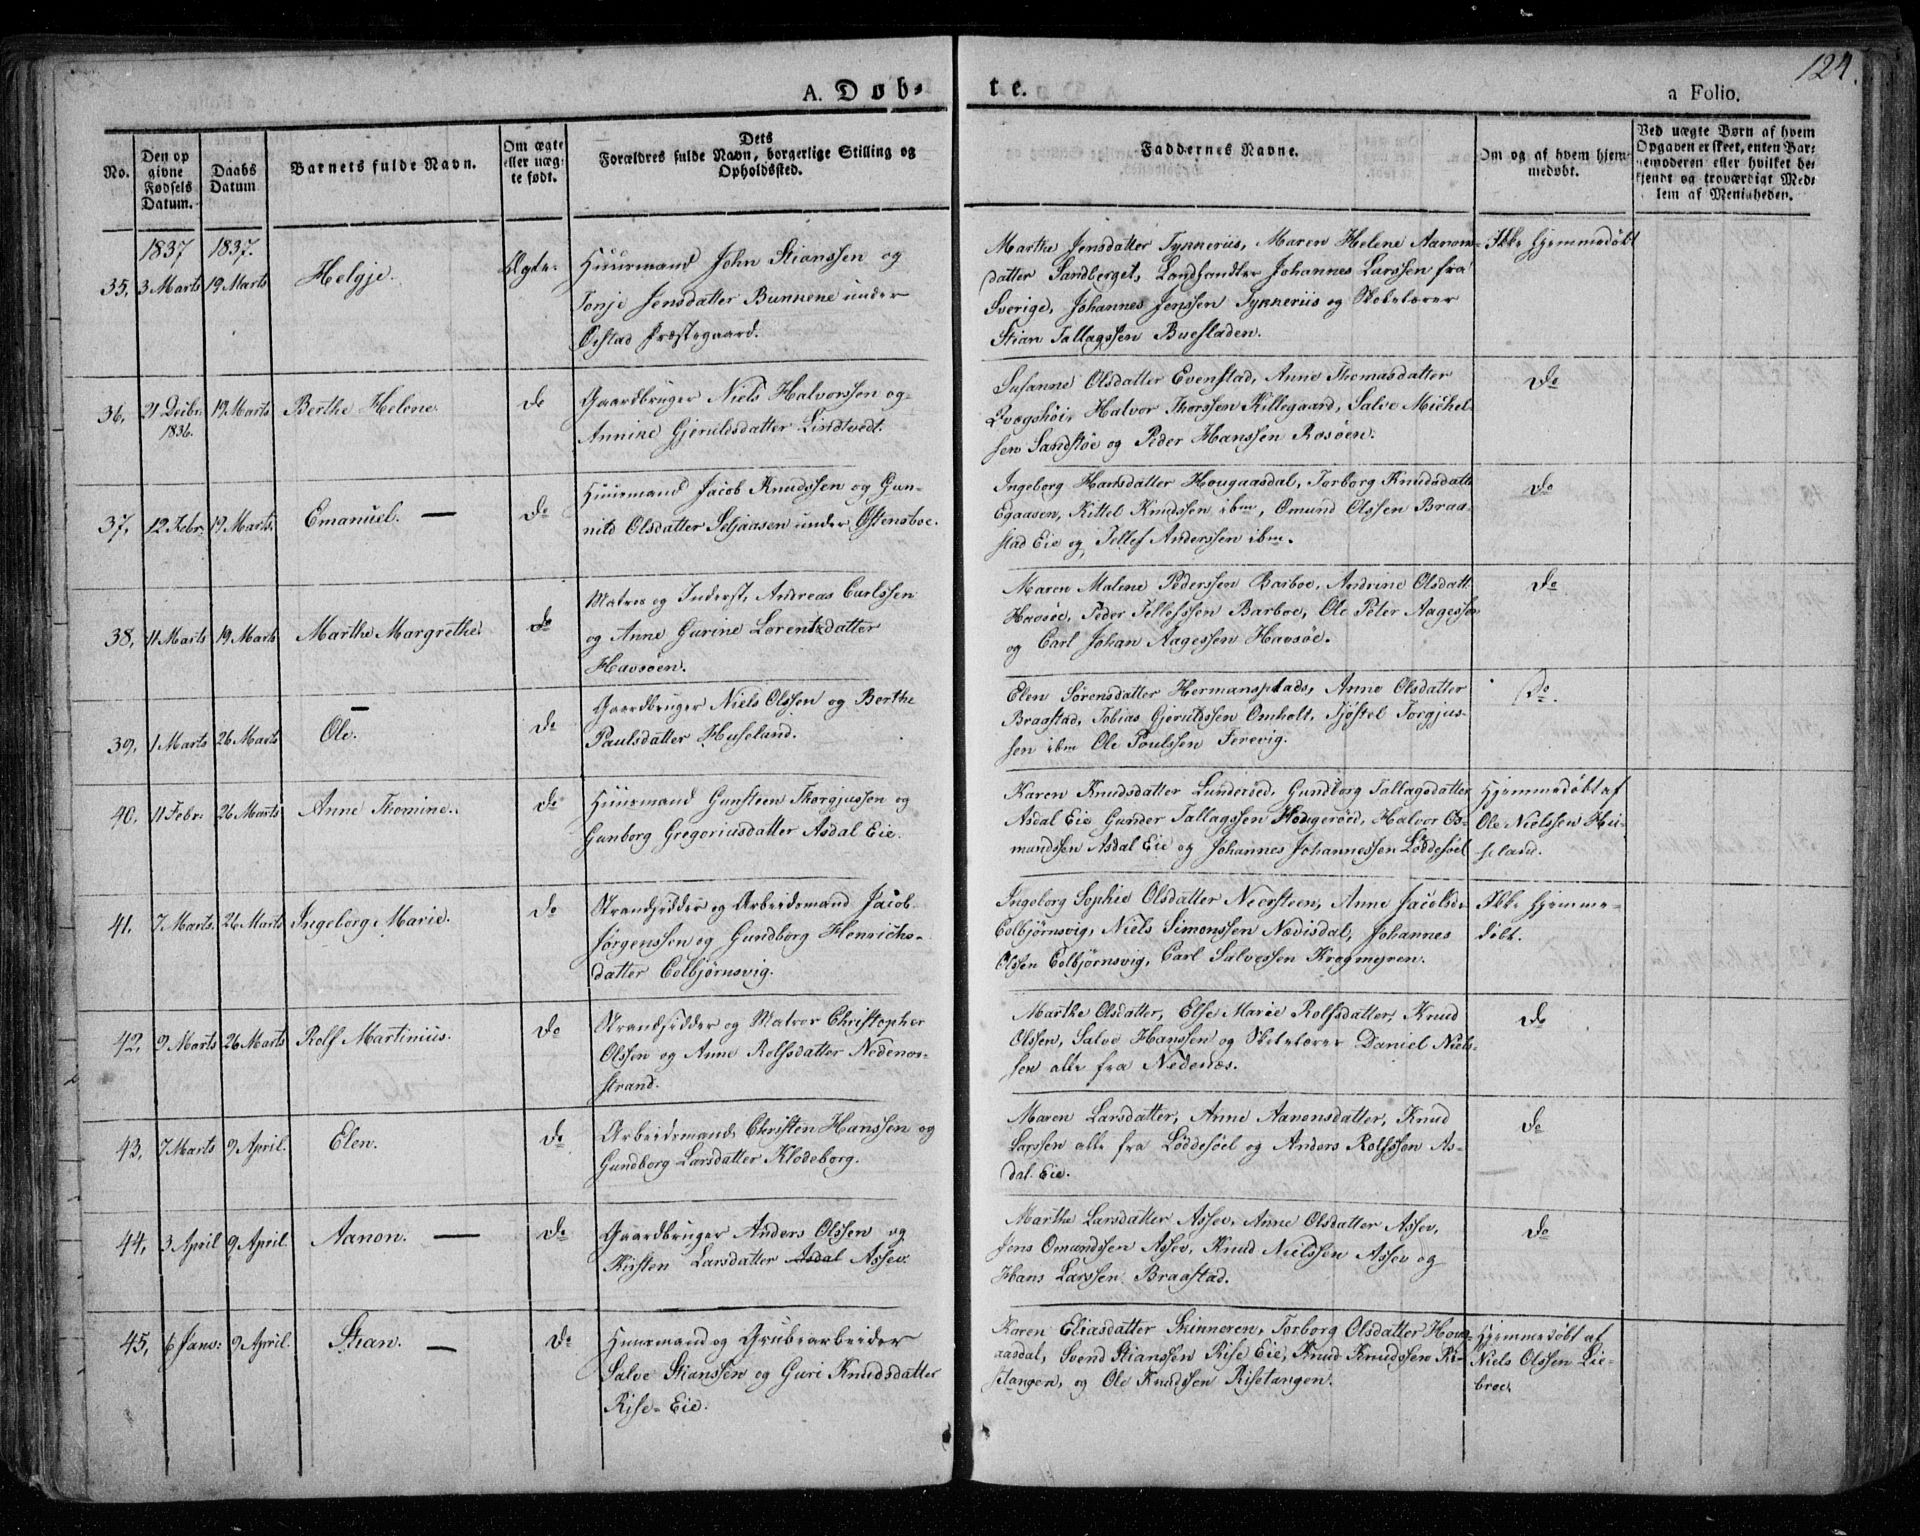 124.
A. Døb-
te.
a Folio.
No.
Den op
givne
Fødsels
Datum.
Daabs
Datum
Barnets fulde Navn.
Om ægte
eller uæg-
te født.
Dets
Forældres fulde Navn, borgerlige Stilling og
Opholdssted.
Faddernes Navne.
Om og af hvem hjem-
medøbt.
Ved uægte Børn af hvem
Opgaven er skeet, enten Bar-
nemoderen eller hvilket be-
kjendt og troværdigt Med-
lem af Menigheden.
1837 1837.
35. 3 Marts 19 Marts Helgje. Ægte
Huusmand John Stianssen og
Tonje Jensdatter Bunnene under
Øistad Præstegaard.
Marthe Jensdatter Tynneriis, Maren Helene Aanon-
datter Sandberget, Landhandler Johannes Larssen fra
Sverige, Johannes Jenssen Tynneriis og Skolelærer
Stian Tallagssen Buesladen.
Ikke Hjemmedøbt
36. 21 Decbr. 19 Marts Berthe Helene. do
1836.
Gaardbruger Niels Halvorssen og
Annine Gjeruldsdatter Lindtvedt.
Susanne Olsdatter Evenstad, Anne Thomasdatter
Qvægshöi, Halvor Thorssen Killegaard, Salve Michel-
sen Sandstöe og Peder Hanssen Rosöen.
do
37. 12 Febr: 19 Marts. Emanuel. — do
Huusmand Jacob Knudssen og Gun-
nild Olsdatter Seljaasen under Østensboe.
Ingeborg Hansdatter Hougaasdal, Torborg Knudsdatt
Egaasen, Kittel Knudssen ibm, Omund Olssen Braa-
stad Eie og Tellef Anderssen ibm.
do
38. 11 Marts 19 Marts Marthe Margrethe. do
Matros og Inderst, Andreas Carlssen
og Anne Gurine Lorentzdatter
Havsöen.
Maren Malene Pederssen Barboe, Andrine Olsdatt
Havsöe, Peder Tellefssen Barboe, Ole Peter Aagessen
og Carl Johan Aagessen Havsöe.
do
39. 1 Marts 26 Marts Ole. do
Gaardbruger Niels Olssen og Berthe
Paulsdatter Huseland.
Elen Sørensdatter Hermansplads, Anne Olsdatter
Braastad, Tobias Gjeruldssen Omholt, Tjøstel Torgjus-
sen ibm Ole Poulssen Ferevig.
do.
40. 11 Febr: 26 Marts Anne Thomine. do
Huusmand Gunsteen Thorgjussen og
Gunborg Gregoriusdatter Asdal Eie.
Karen Knudsdatter Lunderöed, Gundborg Tallagsdatter
Asdal Eie Gunder Tallagssen Hougeröed, Halvor Os-
mundssen Asdal Eie og Johannes Johannessen Löddesöel
Hjemmedøbt af
Ole Nielssen Hu-
seland.
41. 7 Marts. 26 Marts Ingeborg Marie. do
Strandsidder og Arbeidsmand Jacob
Jörgenssen og Gundborg Henrichs-
datter Colbjørnsvig.
Ingeborg Sophie Olsdatter Neersteen, Anne Jacobsd:
Colbjørnsvig, Niels Simonssen Nædisdal, Johannes
Olssen Colbjørnsvig, Carl Salvessen Kragmyren.
Ikke Hjemme-
døbt.
42. 9 Marts 26 Marts Rolf Martinius. do
Strandsidder og Matros Christopher
Olssen og Anne Rolfsdatter Nedenes-
strand.
Marthe Olsdatter, Else Marie Rolfsdatter, Knud
Olssen, Salve Hanssen og Skolelærer Daniel Niels-
sen alle fra Nedenæs.
do
43. 7 Marts 9 April. Elen. do
Arbeidsmand, Christen Hanssen og
Gundborg Larsdatter Klodeborg.
Maren Larsdatter, Anne Aanonsdatter, Knud
Larssen alle fra Löddesöel og Anders Rolfssen As-
dal Eie.
do
44. 3 April 9 April. Aanon. — do
Gaardbruger Anders Olssen og
Kirsten Larsdatter Asdal Assev.
Marthe Larsdatter Assev, Anne Olsdatter Assev,
Jens Omundssen Assev, Knud Nielssen Assev og
Hans Larssen Braastad.
do
45. 6 Janv: 9 April. Stian. — do
Huusmand og Grubearbeider
Salve Stianssen og Guri Knudsdatter
Rise-Eie.
Karen Eliasdatter Skinneren, Torborg Olsdatter Houg-
aasdal, Svend Stianssen Rise Eie, Knud Knudssen Ri-
setangen, og Ole Knudssen Risetangen.
Hjemmedøbt af
Niels Olssen Lie-
broe.